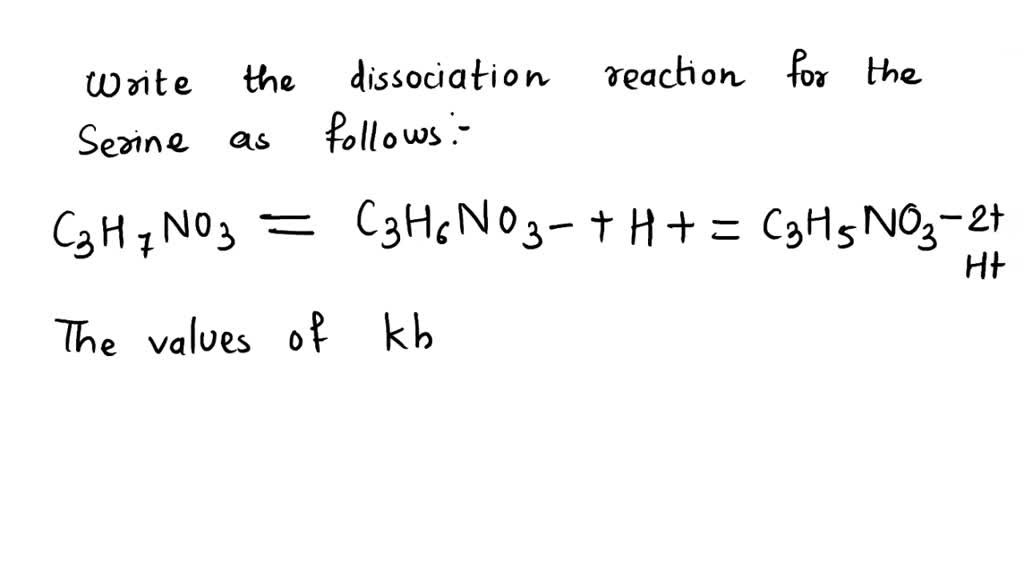 Write the dissociation reaction for the
Serine as follows:-
C₃H₇NO₃ = C₃H₆NO₃- + H+ = C₃H₅NO₃-2+
H+
The values of kb